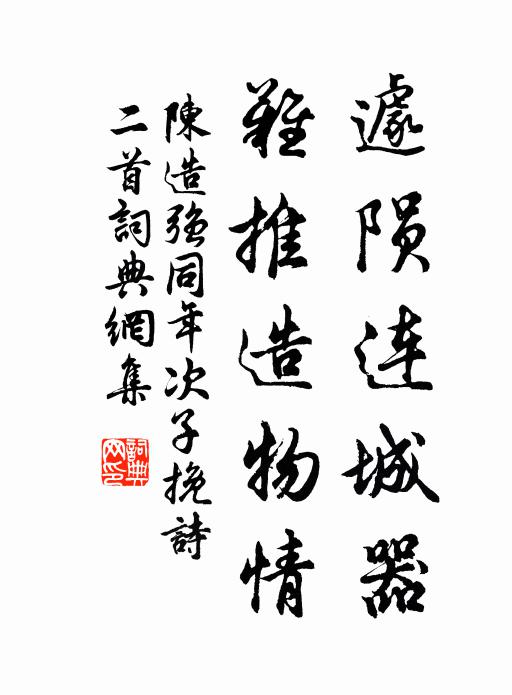 遽陨连城器
難推造物情
陳造強同年次子挽詩
二首詞典網集
詞典
网印